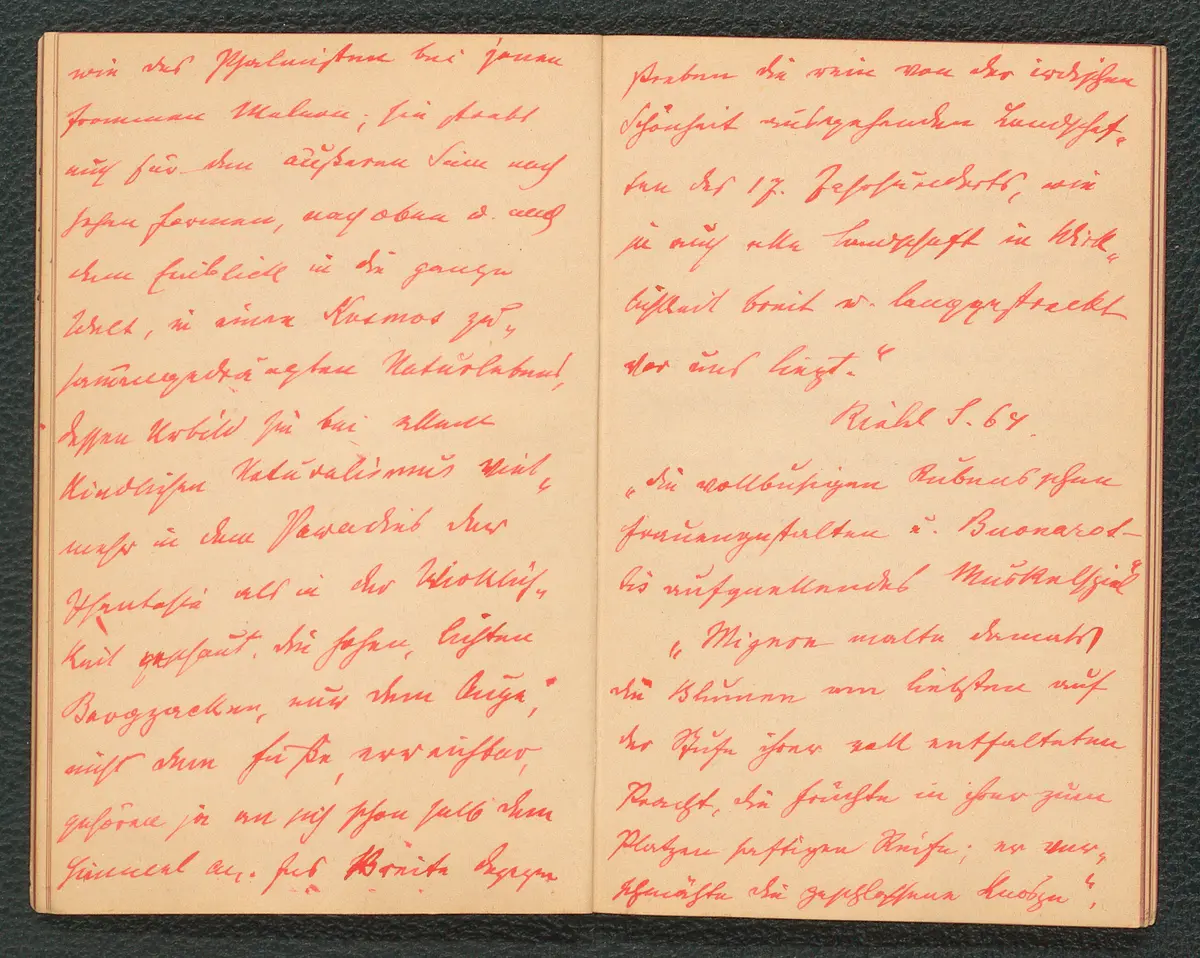 wie des Psalmisten bei jenen
frommen Malern; sie strebt
auch für den äußeren Sinn nach
hohen Formen, nach oben u. nach
dem Einblick in die ganze
Welt, in einen Kosmos zu„
sam̄engedrängten Naturlebens,
dessen Urbild sie bei allem
kindlichen Naturalismus viel„
mehr in dem Paradies der
Phantasie als in der Wirklich„
keit geschaut. Die hohen, lichten
Bergzacken, nur dem Auge,
nicht dem Fuße, erreichbar,
gehören ja an sich schon halb dem
Himmel an. Ins Breite dagegen
streben die rein von der irdischen
Schönheit ausgehenden Landschaf„
ten des 17. Jahrhunderts, wie
ja auch alle Landschaft in Wirk„
lichkeit breit u. langgestreckt
vor uns liegt.“
Riehl S. 64.
„die vollbusigen Rubensschen
Frauengestalten u. Buonarot-
tis aufquellendes Muskelspiel“
„Mignon malte damals
die Blumen am liebsten auf
der Stufe ihrer voll entfalteten
Pracht, die Früchte in ihrer zum
Platzen saftigen Reife; er ver„
schmähte die geschlossene Knospe“,